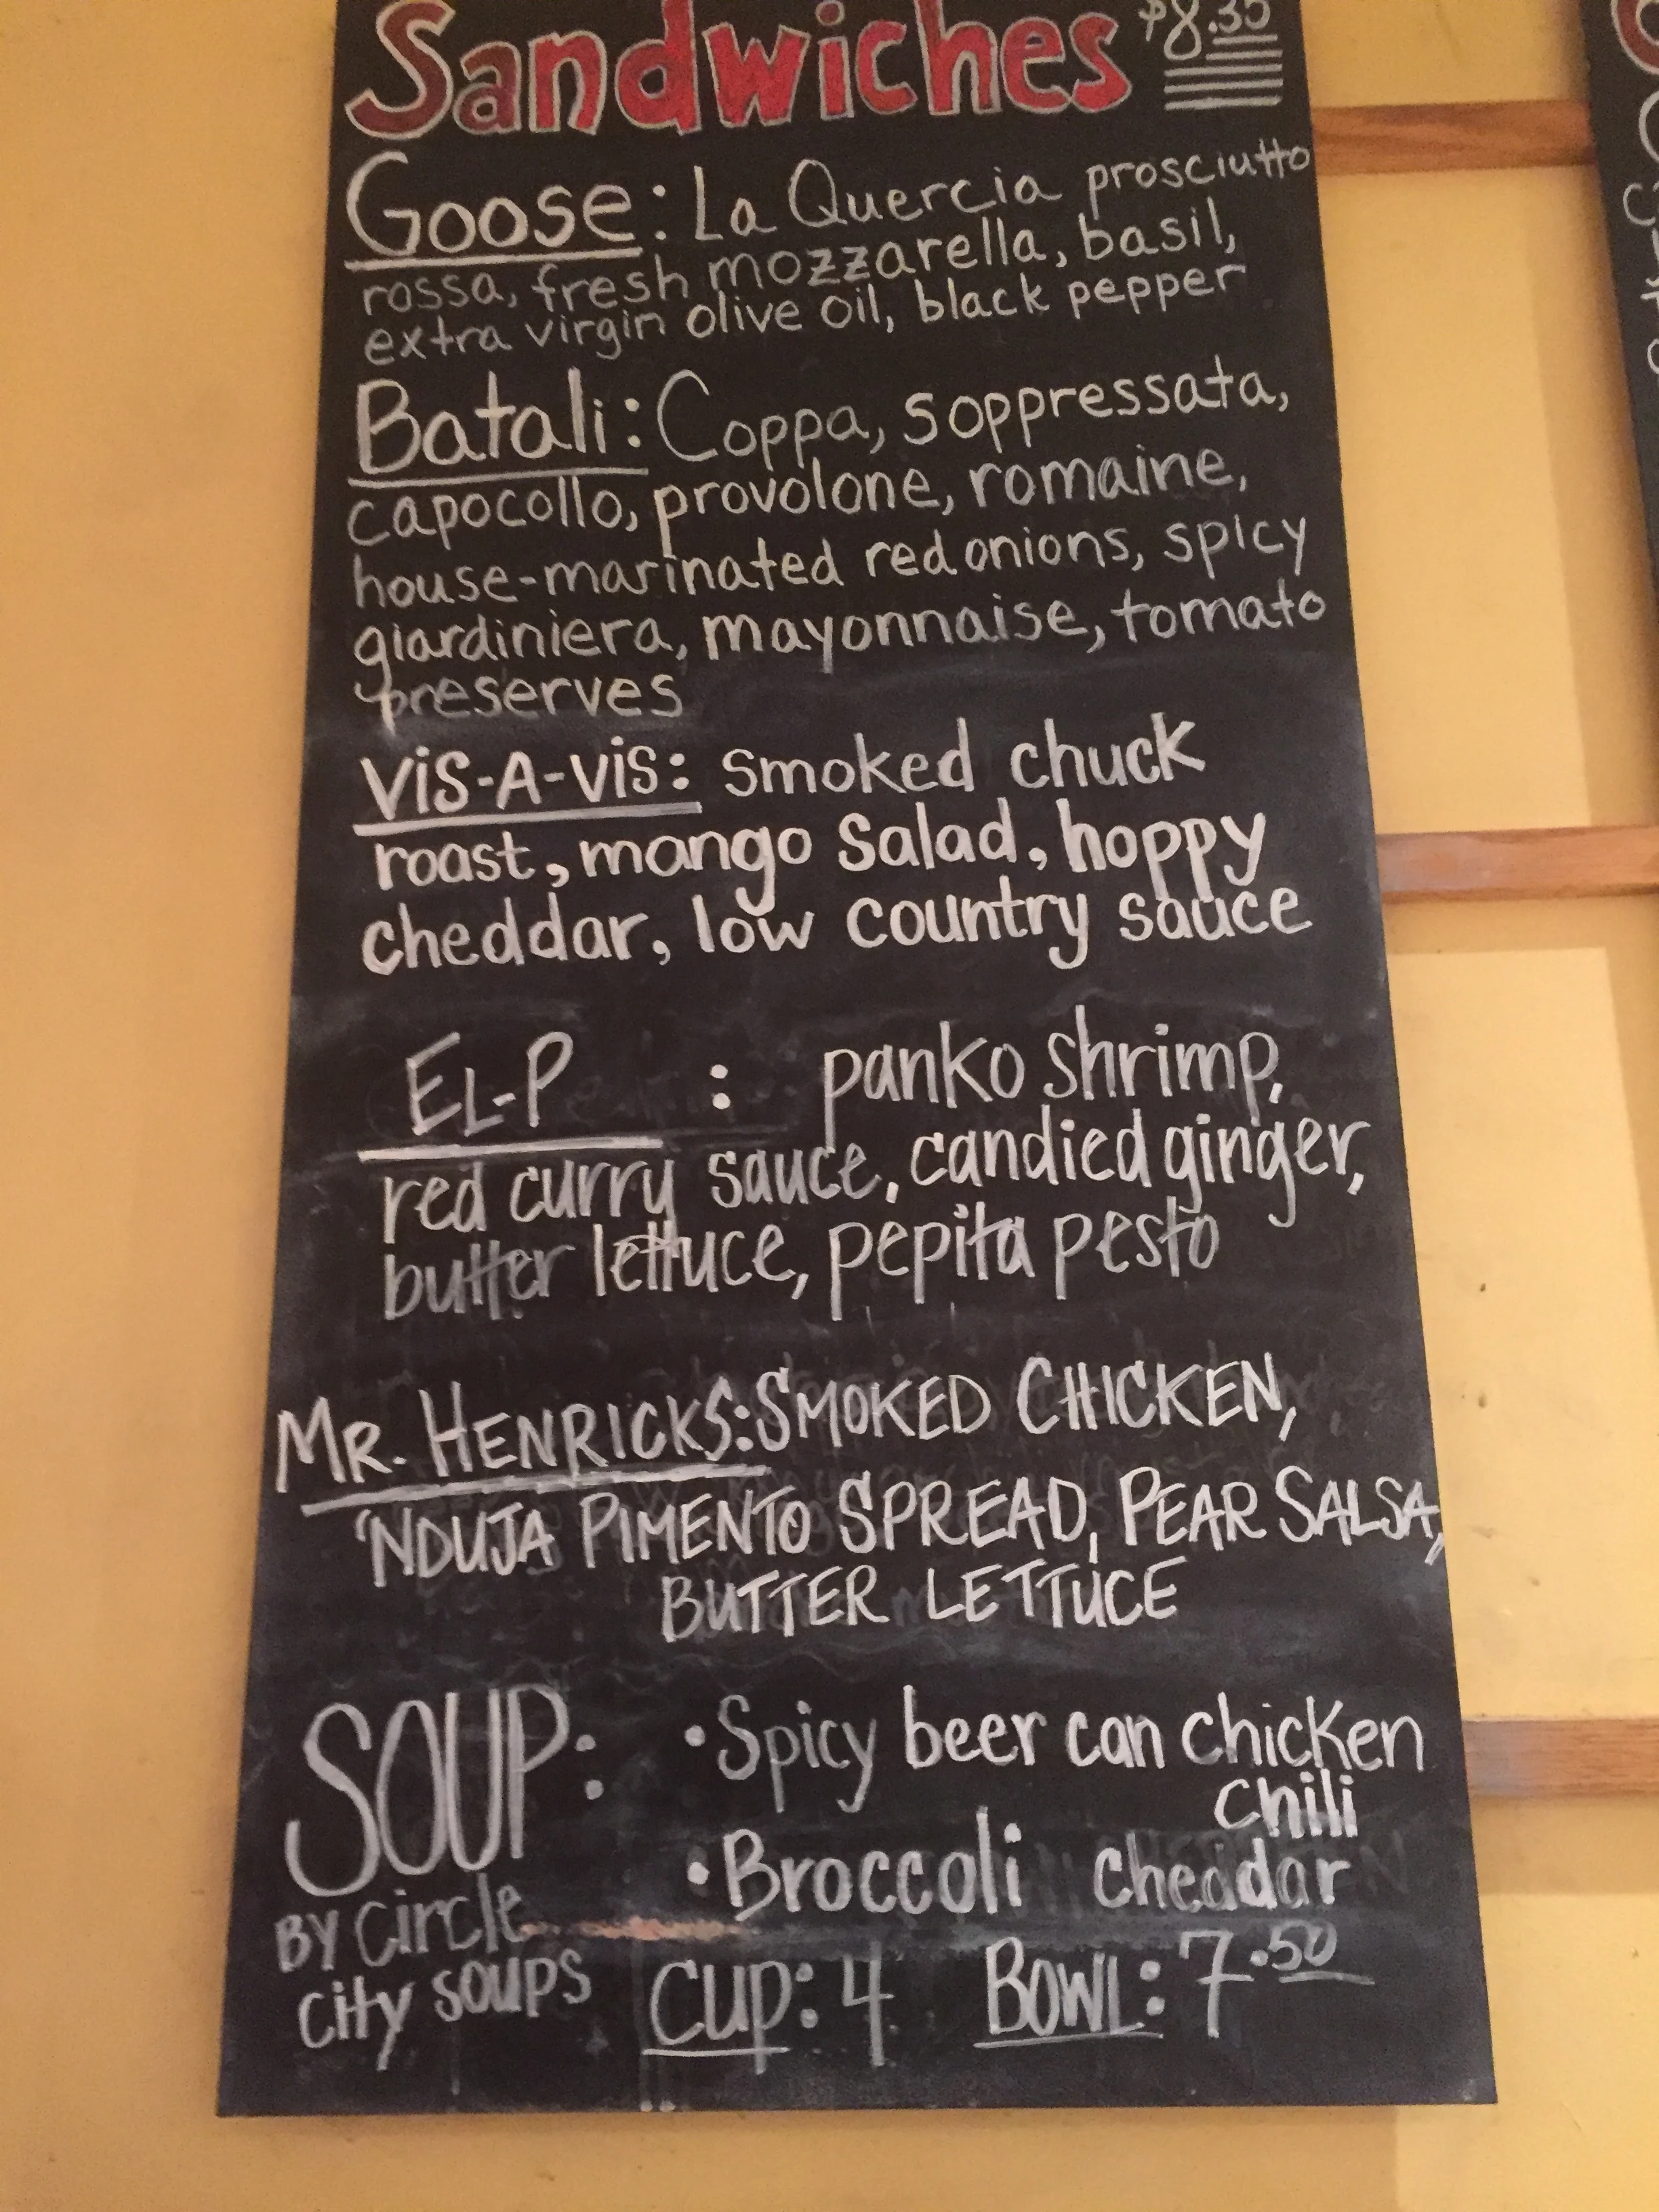 Sandwiches $8.35
Goose: La Quercia prosciutto
rossa, fresh mozzarella, basil,
extra virgin olive oil, black pepper
Batali: Coppa, soppressata,
capocollo, provolone, romaine,
house-marinated red onions, spicy
giardiniera, mayonnaise, tomato
preserves
ViS-A-ViS: smoked chuck
roast, mango salad, hoppy
cheddar, low country sauce
EL-P : panko shrimp,
red curry sauce, candied ginger,
butter lettuce, pepita pesto
MR. HENRICKS: SMOKED CHICKEN,
'NDUJA PIMENTO SPREAD, PEAR SALSA,
BUTTER LETTUCE
SOUP: • Spicy beer can chicken
chili
• Broccoli cheddar
BY Circle
City SOUPS
CUP: 4 BOWL: 7.50